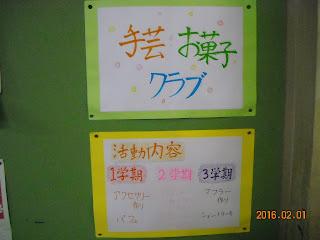 手芸 お菓子
クラブ
活動内容
1学期 2学期 3学期
アクセサリー 作り
パフェ
マフラー 作り
ショートケーキ
2016.02.01